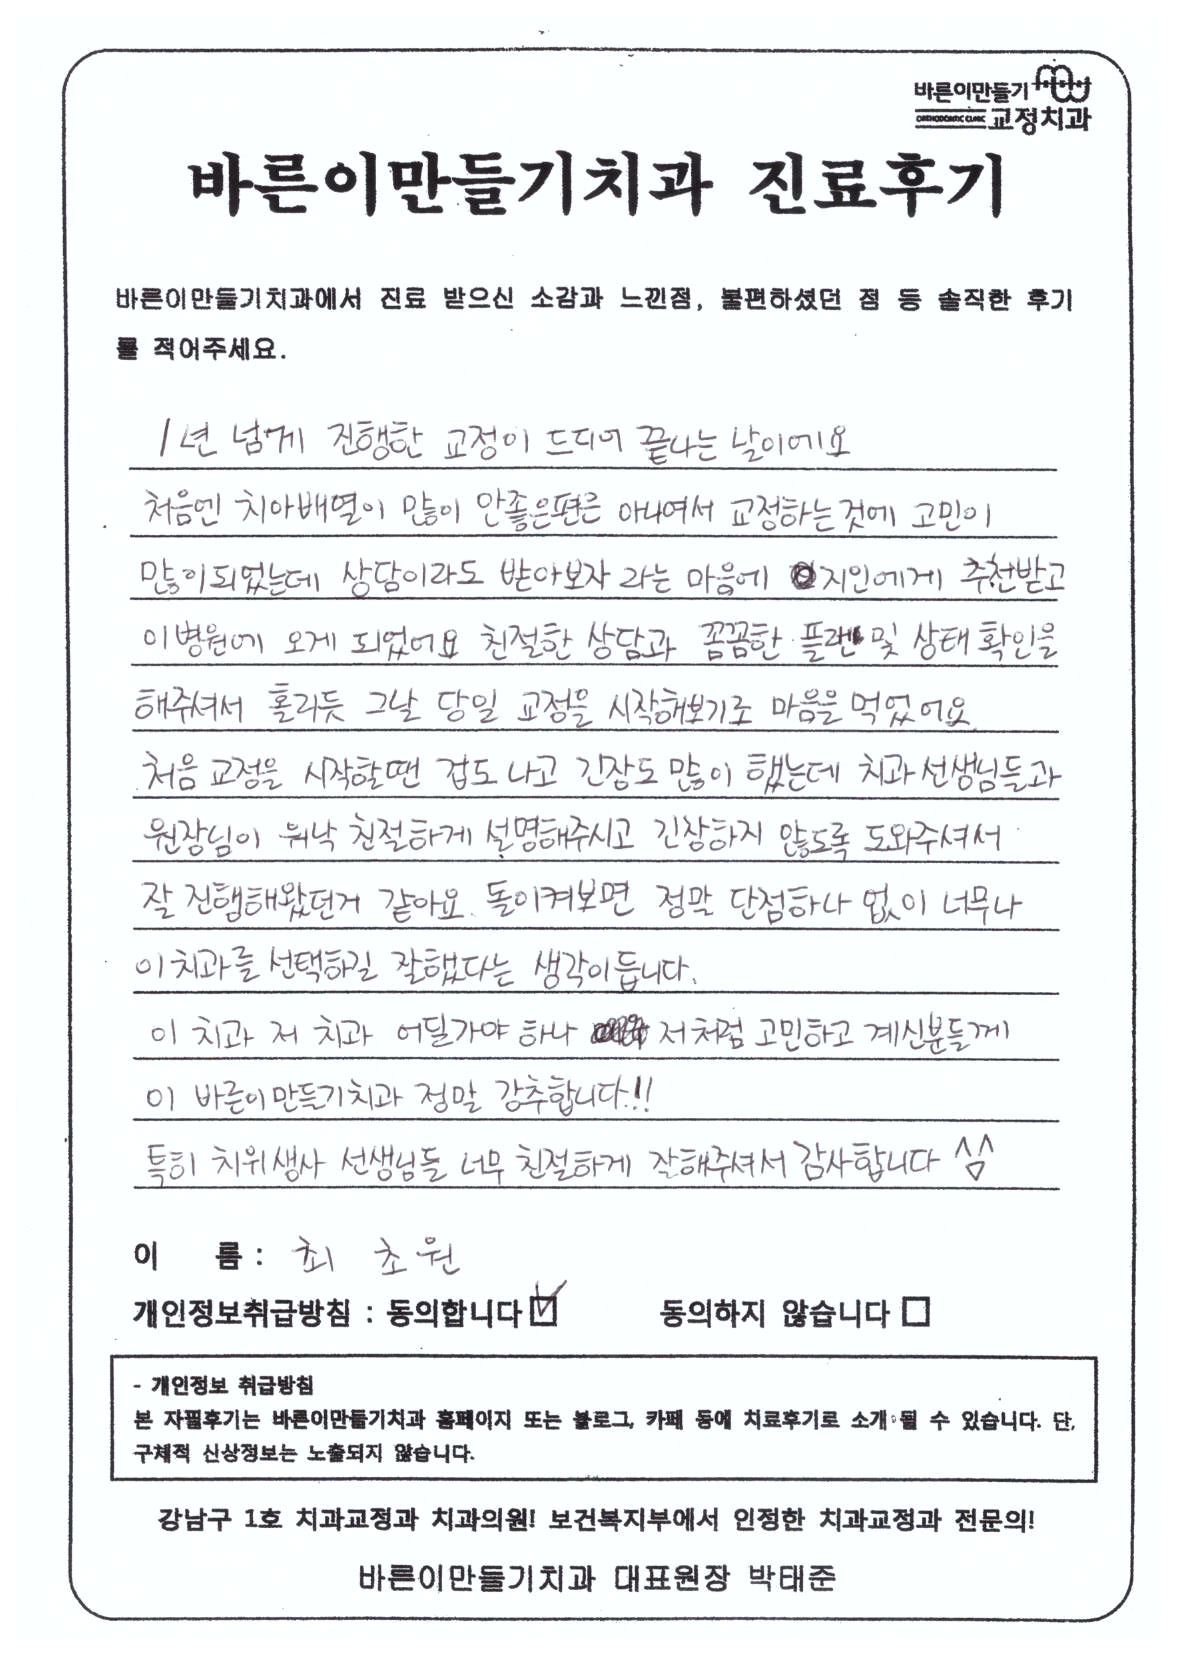 바른이만들기
ORTHODONTIC CLINIC 교정치과
바른이만들기치과 진료후기
바른이만들기치과에서 진료 받으신 소감과 느낀점, 불편하셨던 점 등 솔직한 후기
를 적어주세요.
1년 넘게 진행한 교정이 드디어 끝나는 날이에요
처음엔 치아배열이 많이 안좋은편은 아니여서 교정하는것에 고민이
많이되었는데 상담이라도 받아보자 라는 마음에 지인에게 추천받고
이병원에 오게 되었어요 친절한 상담과 꼼꼼한 플랜 및 상태 확인을
해주셔서 홀리듯 그날 당일 교정을 시작해보기로 마음을 먹었어요
처음 교정을 시작할땐 겁도 나고 긴장도 많이 했는데 치과 선생님들과
원장님이 워낙 친절하게 설명해주시고 긴장하지 않도록 도와주셔서
잘 진행해왔던거 같아요. 돌이켜보면 정말 단점하나 없이 너무나
이 치과를 선택하길 잘했다는 생각이듭니다.
이 치과 저 치과 어딜가야 하나 저처럼 고민하고 계신분들께
이 바른이만들기치과 정말 강추합니다!!
특히 치위생사 선생님들 너무 친절하게 잘해주셔서 감사합니다 ^^
이 름 : 최 초원
개인정보취급방침 : 동의합니다 ☑ 동의하지 않습니다 □
- 개인정보 취급방침
본 자필후기는 바른이만들기치과 홈페이지 또는 블로그, 카페 등에 치료후기로 소개 될 수 있습니다. 단,
구체적 신상정보는 노출되지 않습니다.
강남구 1호 치과교정과 치과의원! 보건복지부에서 인정한 치과교정과 전문의!
바른이만들기치과 대표원장 박태준